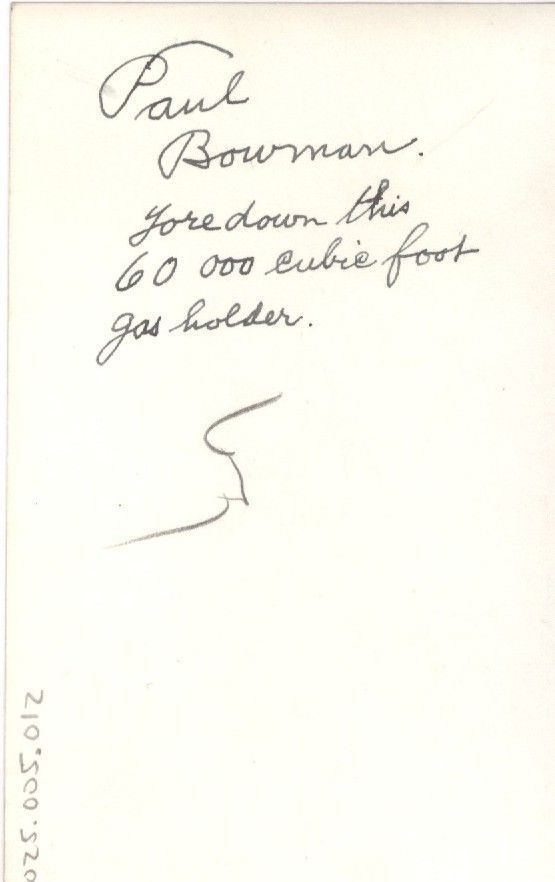 Paul
Bowman.
Tore down this
60 000 cubic foot
gas holder.
025.005.012